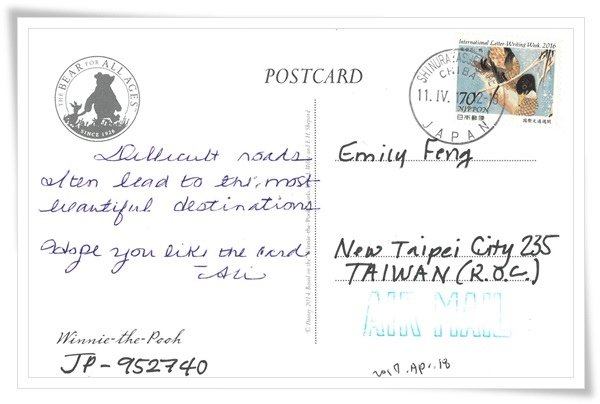 THE BEAR FOR ALL AGES
SINCE 1926
POSTCARD
International Letter-Writing Week, 2016
70
NIPPON
日本郵便
国際文通週間
CHIBA
11. IV.
JAPAN
Difficult roads
often lead to the most
beautiful destinations
Hope you like the card
Emily Feng
New Taipei City 235
TAIWAN (R.O.C.)
AIR MAIL
Winnie-the-Pooh
JP-952740
2017.Apr.18